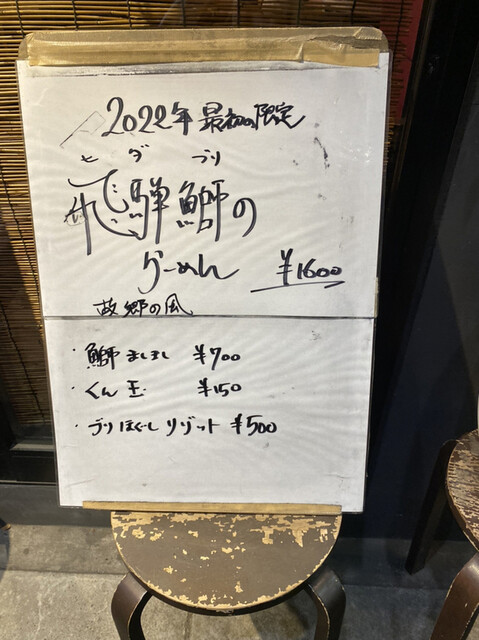 2022年 最初の限定
ヒ ダ ブリ
飛騨鰤の
らーめん ¥1600
故郷の風
・鰤ましまし ¥700
・くん玉 ¥150
・ブリほぐしリゾット ¥500